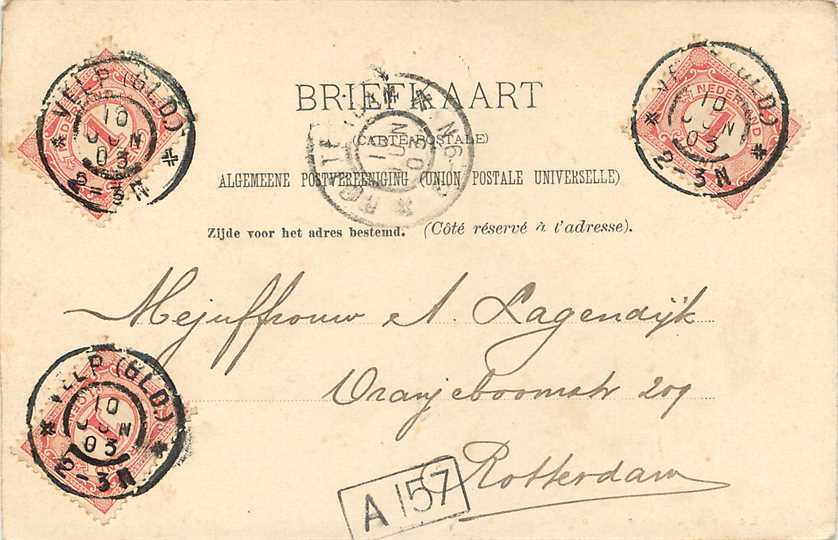 BRIEFKAART
(CARTE POSTALE)
ALGEMEENE POSTVEREENIGING (UNION POSTALE UNIVERSELLE)
Zijde voor het adres bestemd. (Côté réservé à l'adresse).
VELP (GLD)
10
JUN
03
VELP (GLD)
10
JUN
03
2-3N
NEDERLAND
1
Mejuffrouw A. Lagendijk
Oranjeboomstr 209
Rotterdam
VELP (GLD)
10
JUN
03
2-3N
1
A 157